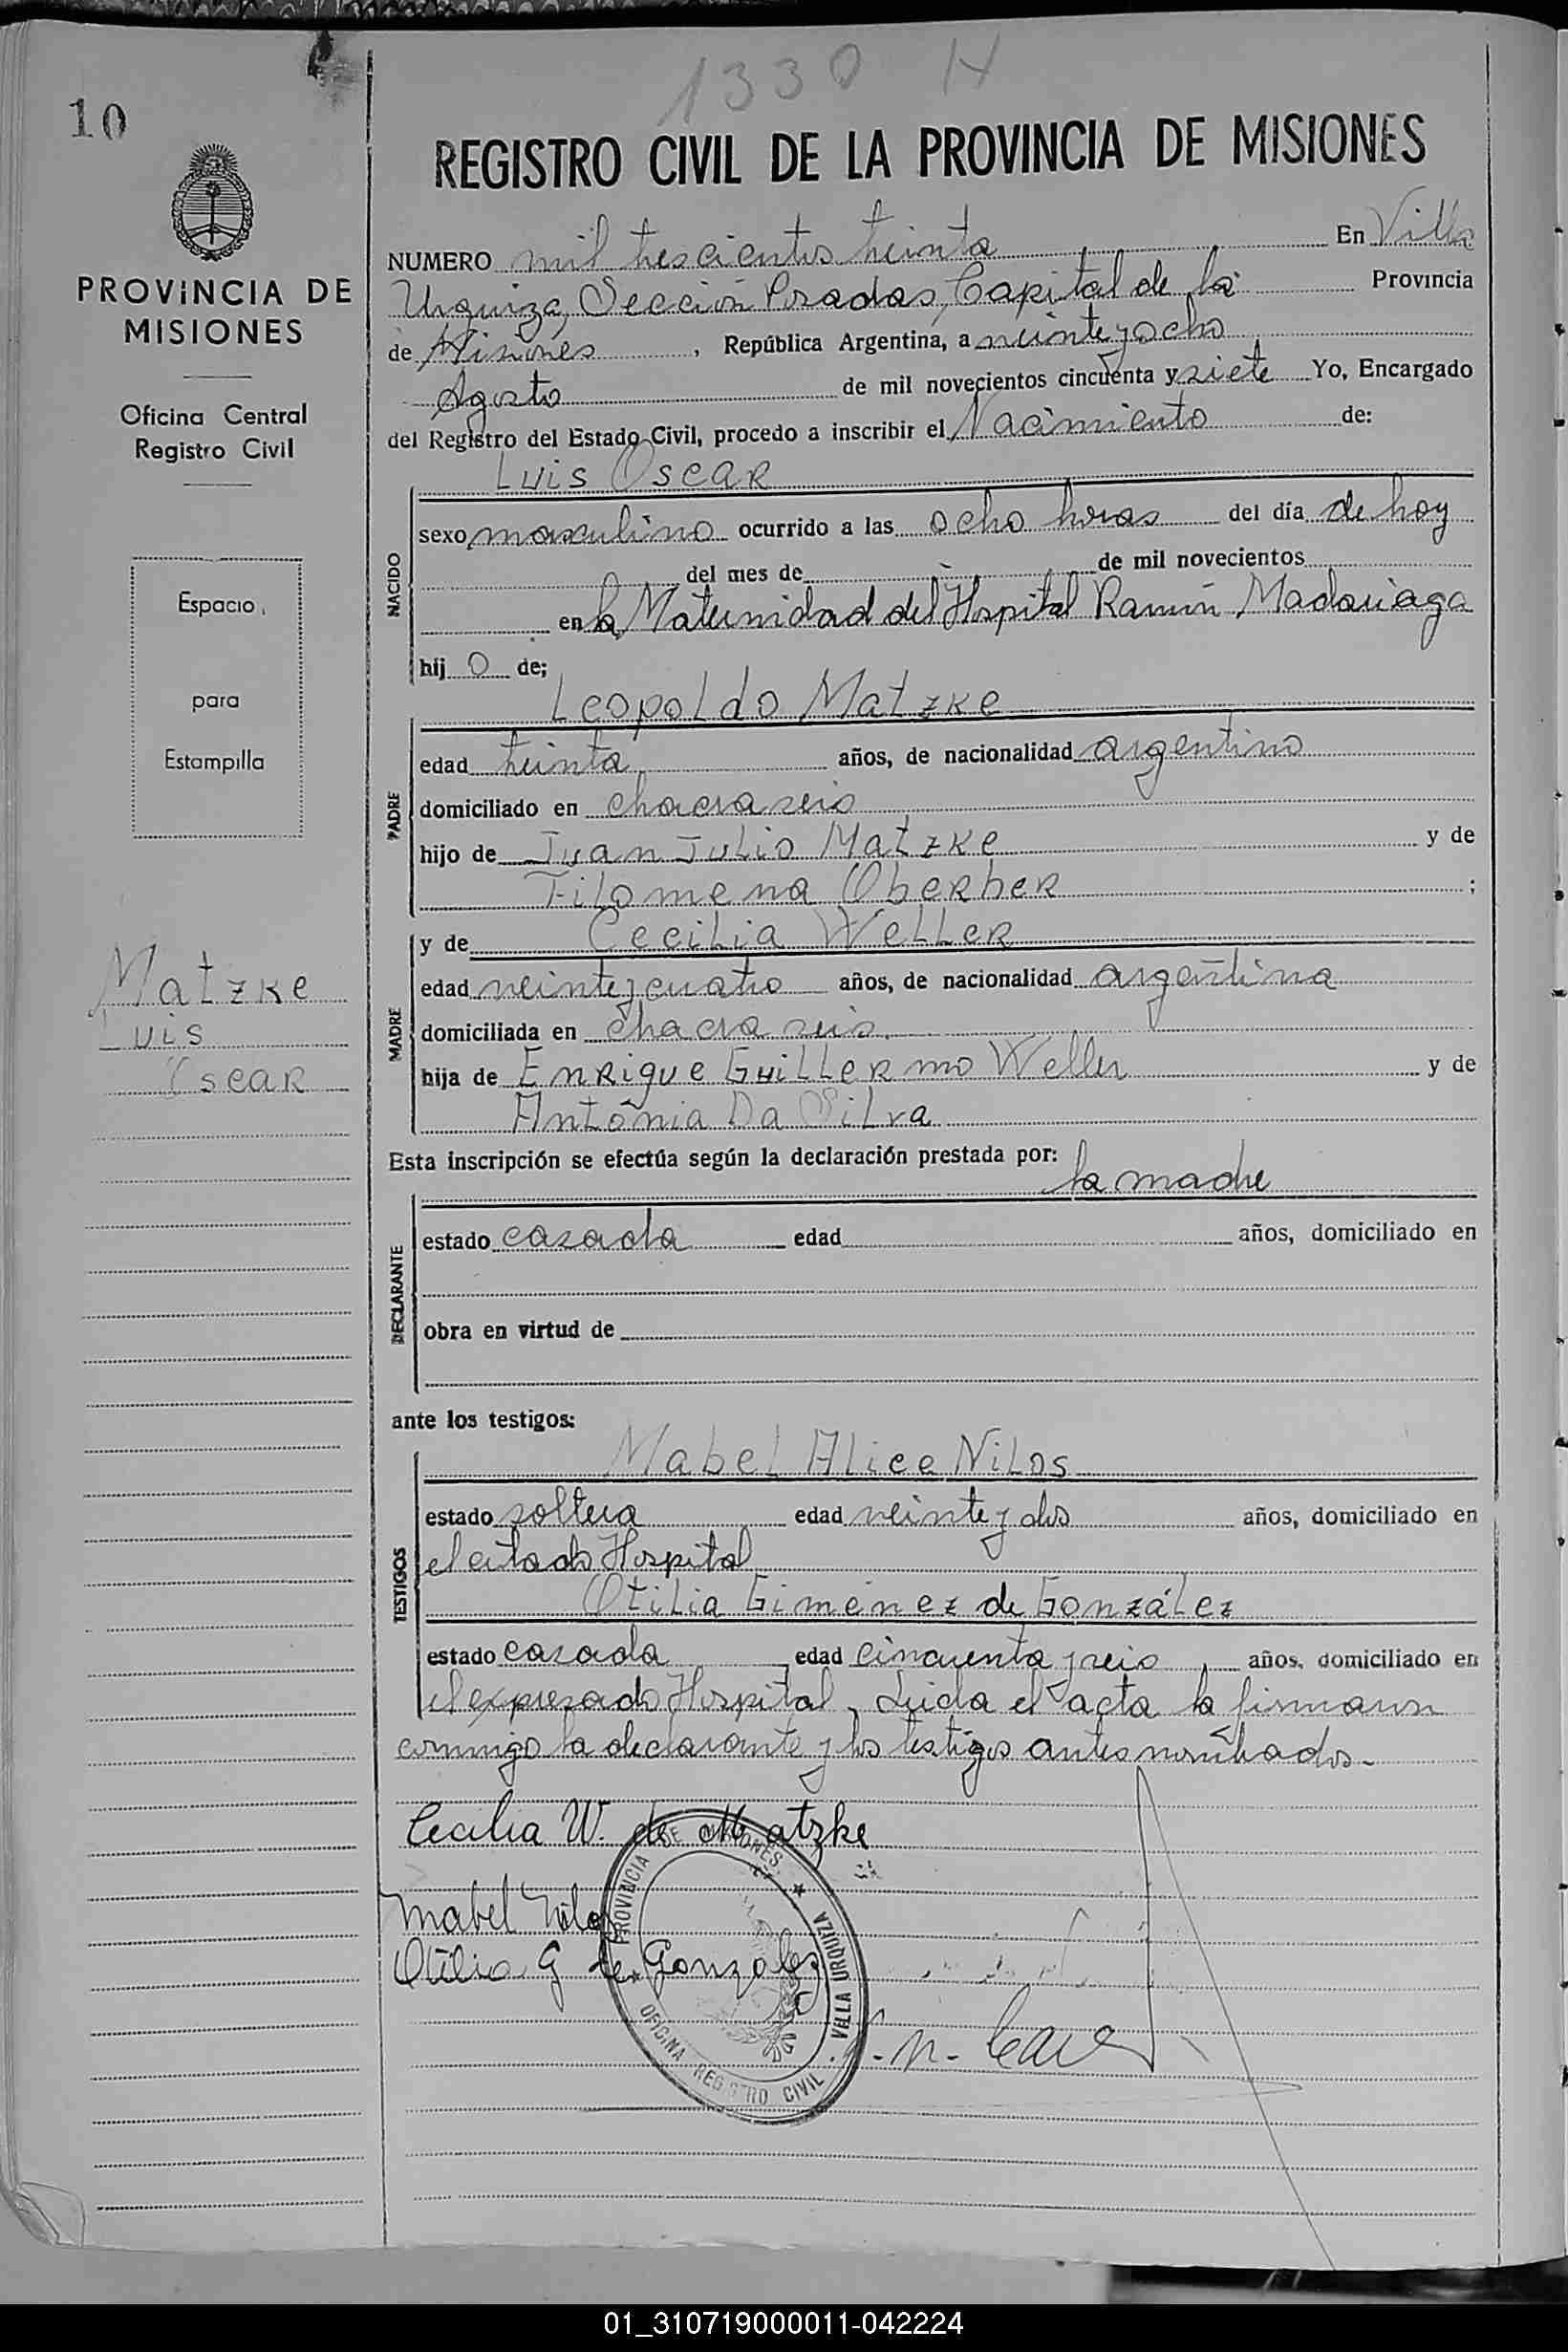 1330 H
10
REGISTRO CIVIL DE LA PROVINCIA DE MISIONES
PROVINCIA DE
MISIONES
Oficina Central
Registro Civil
Espacio
para
Estampilla
Matzke
Luis
Oscar
NUMERO mil trescientos treinta En Villa
Urquiza, Sección Posadas, Capital de la Provincia
de Misiones, República Argentina, a veinte y ocho
Agosto de mil novecientos cincuenta y siete Yo, Encargado
del Registro del Estado Civil, procedo a inscribir el Nacimiento de:
Luis Oscar
NACIDO
sexo masculino ocurrido a las ocho horas del día de hoy
del mes de de mil novecientos
en la Maternidad del Hospital Ramón Madariaga
hij o de;
Leopoldo Matzke
PADRE
edad treinta años, de nacionalidad argentino
domiciliado en chacra seis
hijo de Juan Julio Matzke y de
Filomena Oberher ;
MADRE
y de Cecilia Weller
edad veinte y cuatro años, de nacionalidad argentina
domiciliada en chacra seis
hija de Enrique Guillermo Weller y de
Antonia Da Silva
Esta inscripción se efectúa según la declaración prestada por:
la madre
DECLARANTE
estado casada edad años, domiciliado en
obra en virtud de
ante los testigos:
Mabel Alice Nilos
TESTIGOS
estado soltera edad veinte y dos años, domiciliado en
el citado Hospital
Otilia Giménez de González
estado casada edad cincuenta y seis, años, domiciliado en
el expresado Hospital. Leida el acta la firmaron
conmigo la declarante y los testigos antes nombrados.-
Cecilia W. de Matzke
Mabel Nilos
Otilia G de Gonzalez
PROVINCIA DE MISIONES ★ VILLA URQUIZA
★ OFICINA REGISTRO CIVIL
01_310719000011-042224